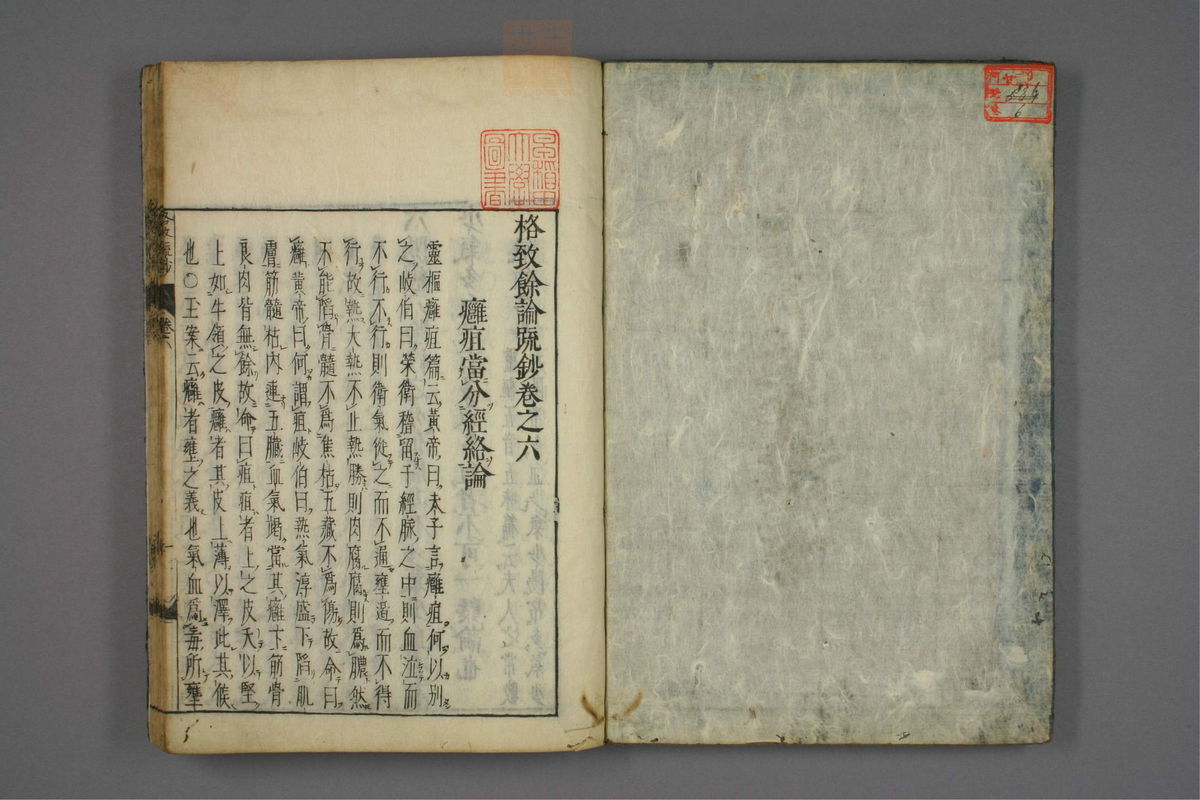 格致餘論疏鈔卷之六
癰疽當分經絡論
靈樞癰疽篇云黃帝曰夫子言癰疽何以別
之岐伯曰榮衛稽留于經脈之中則血泣而
不行不行則衛氣從之而不通壅遏而不得
行故熱大熱不止熱勝則肉腐腐則爲膿然
不能陷骨髓不爲焦枯五藏不爲傷故命曰
癰黃帝曰何謂疽岐伯曰熱氣淳盛下陷肌
膚筋髓枯內連五臟血氣竭當其癰下筋骨
良肉皆無餘故命曰疽疽者上之皮夭以堅
上如牛領之皮癰者其皮上薄以澤此其候
也○王案云癰者壅之義也氣血爲毒所壅
早稻田
大學
圖書
6